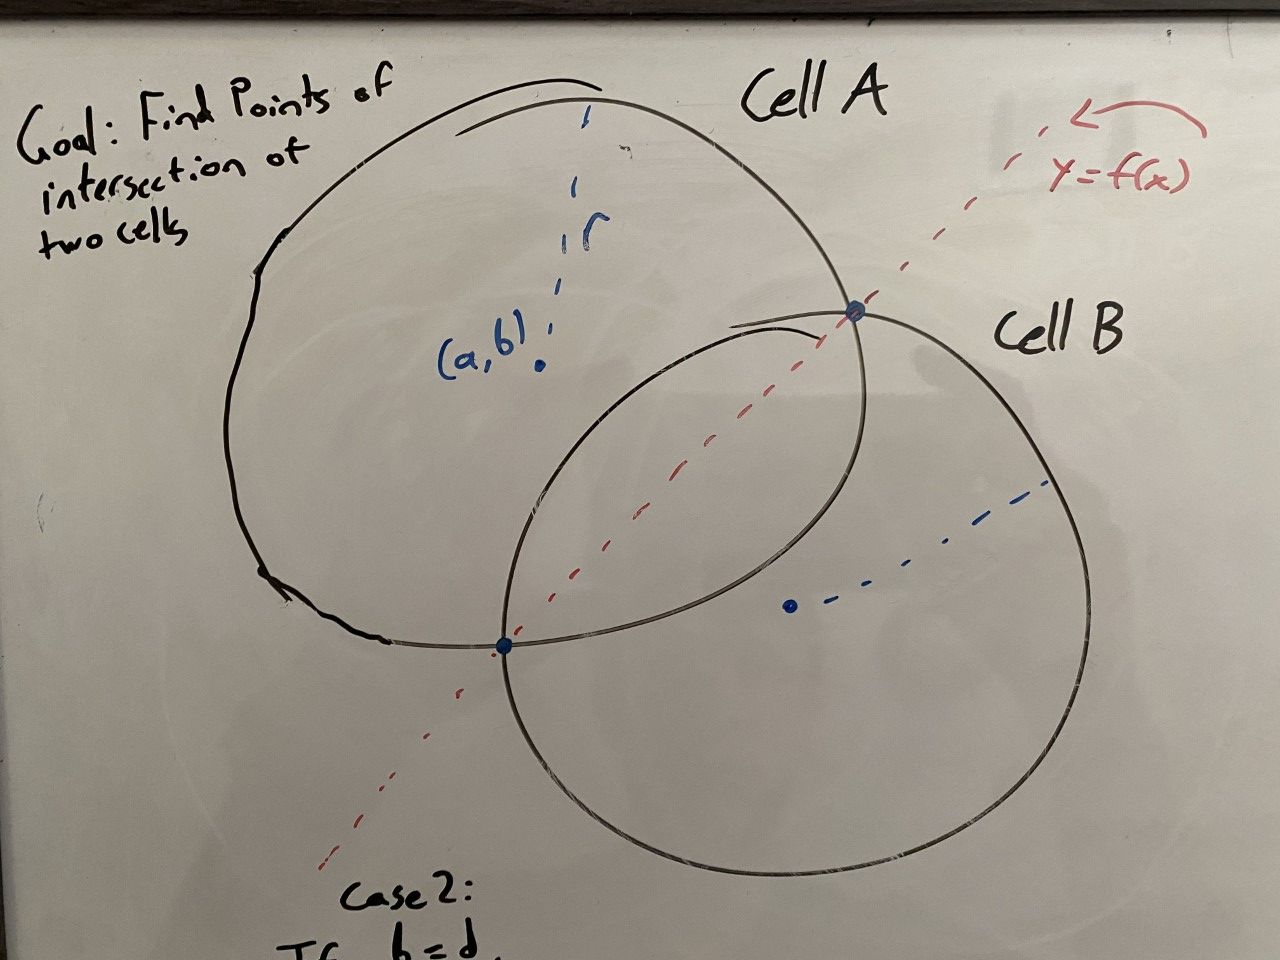 Goal: Find Points of
intersection of
two cells
Cell A
y=f(x)
r
(a,b)
Cell B
Case 2:
If b=d,